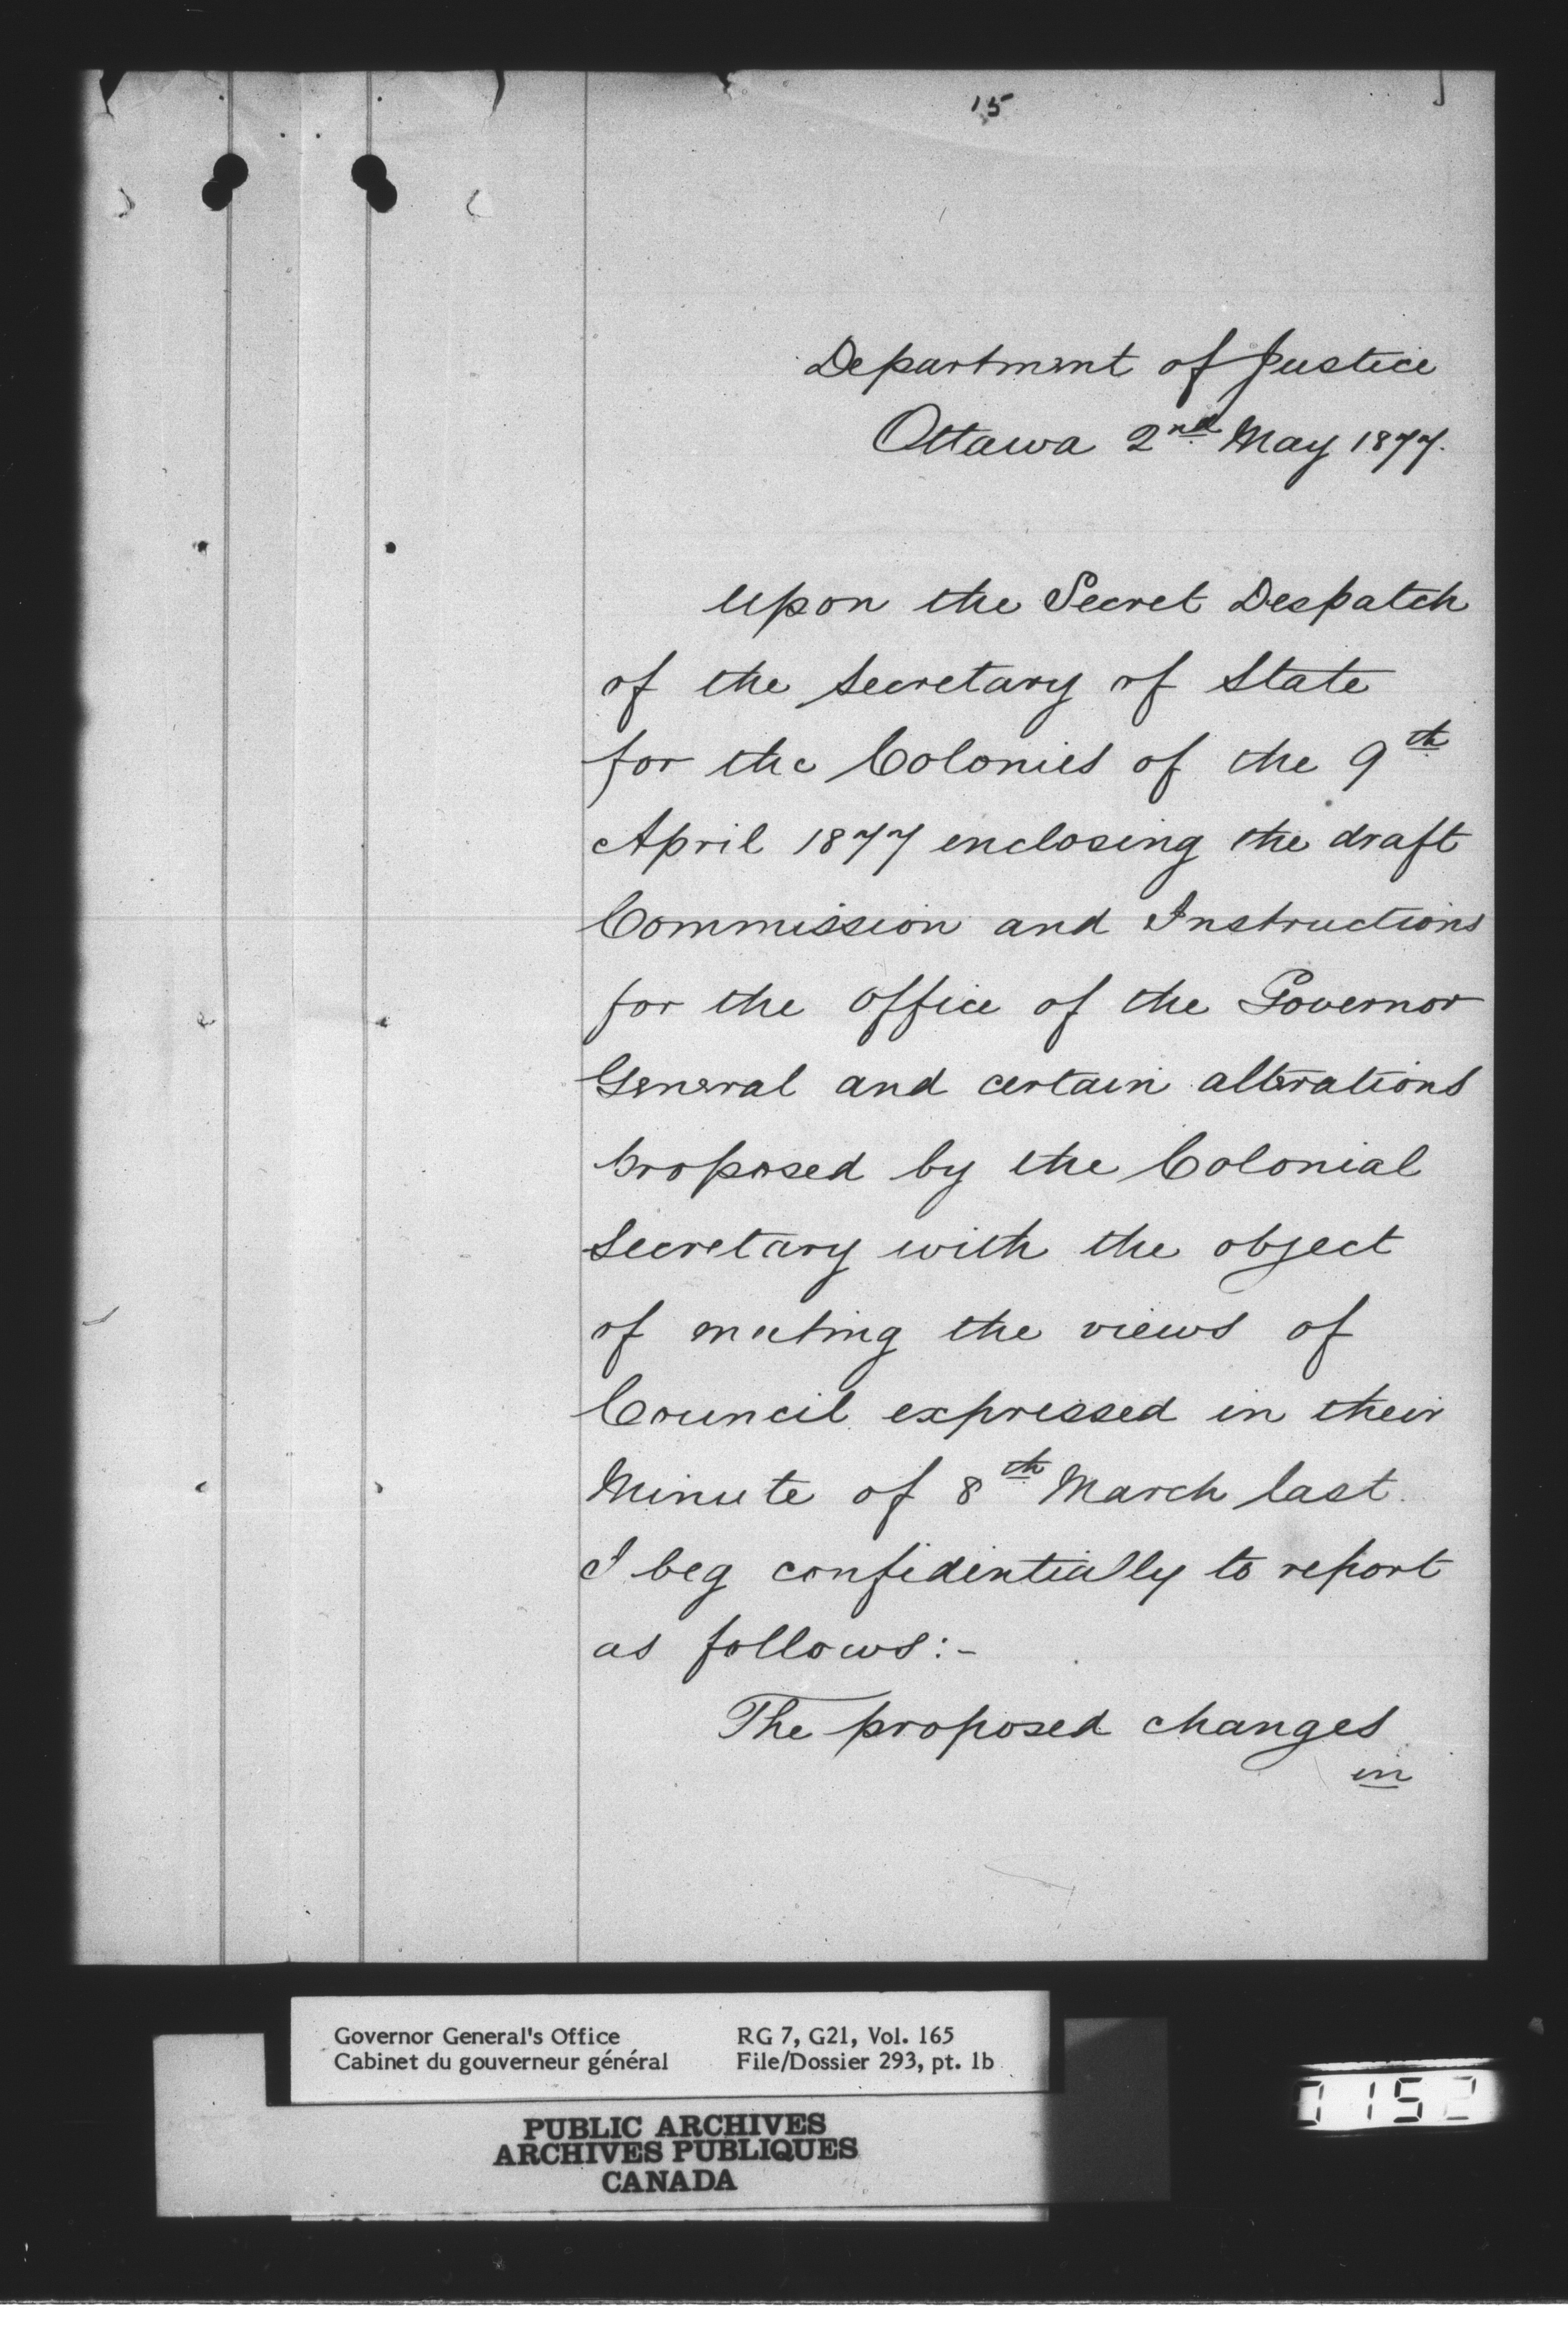 15
Department of Justice
Ottawa 2nd May 1877.
Upon the Secret Despatch
of the Secretary of State
for the Colonies of the 9th
April 1877 enclosing the draft
Commission and Instructions
for the office of the Governor
General and certain alterations
proposed by the Colonial
Secretary with the object
of meeting the views of
Council expressed in their
Minute of 8th March last.
I beg confidentially to report
as follows:-
The proposed changes
in
Governor General's Office RG 7, G21, Vol. 165
Cabinet du gouverneur général File/Dossier 293, pt. 1b
PUBLIC ARCHIVES
ARCHIVES PUBLIQUES
CANADA
0152